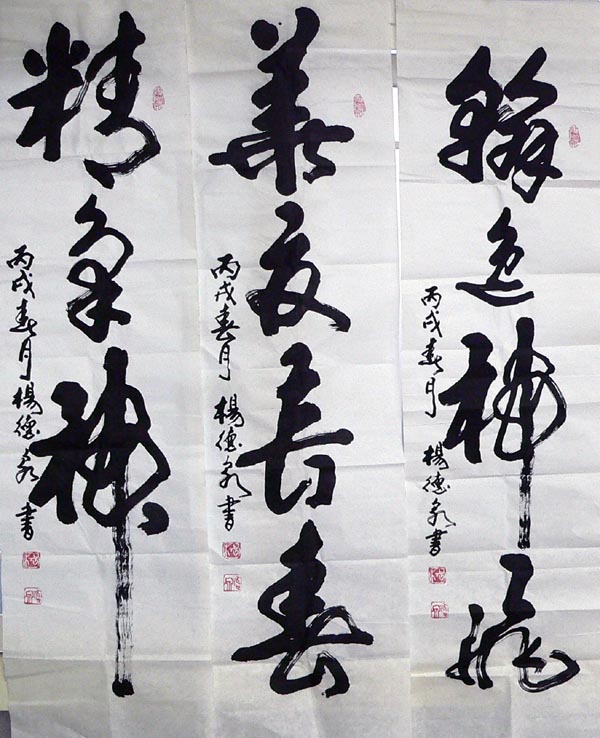 翰逸神飛
丙戌春月 楊德泉書
華夏長春
丙戌春月 楊德泉書
精氣神
丙戌春月 楊德泉書